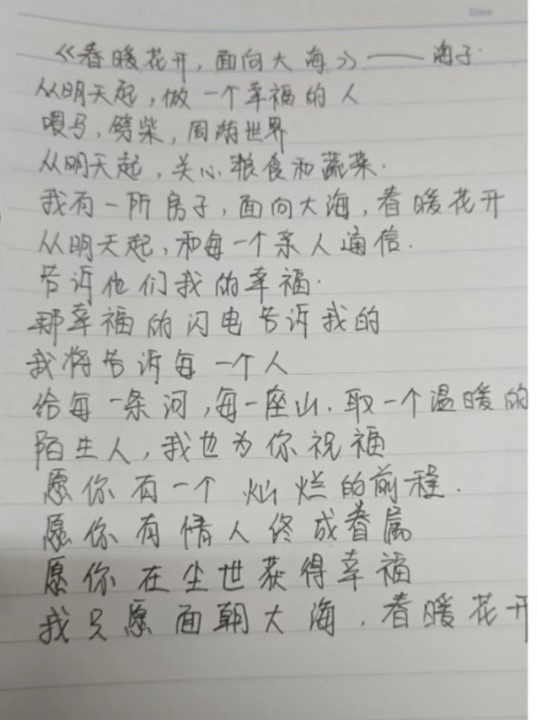 Date
《春暖花开,面向大海》——海子.
从明天起,做一个幸福的人
喂马,劈柴,周游世界
从明天起,关心粮食和蔬菜.
我有一所房子,面向大海,春暖花开
从明天起,和每一个亲人通信.
告诉他们我的幸福.
那幸福的闪电告诉我的
我将告诉每一个人
给每一条河,每一座山.取一个温暖的
陌生人,我也为你祝福
愿你有一个灿烂的前程.
愿你有情人终成眷属
愿你在尘世获得幸福
我只愿面朝大海,春暖花开